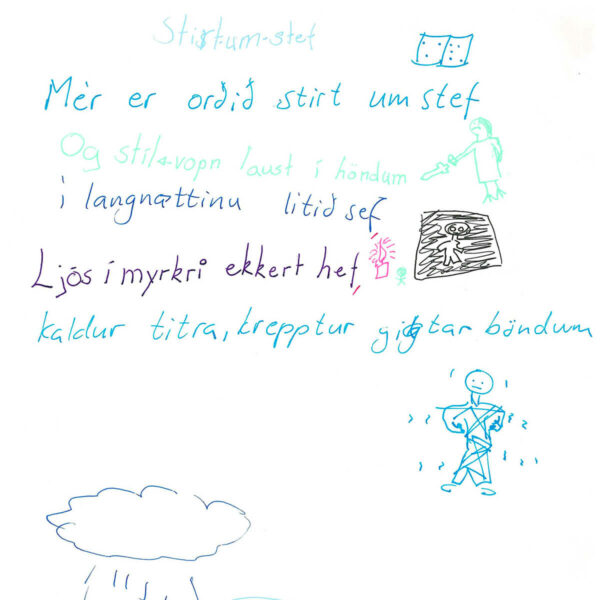 Stirt-um-stef
Mér er orðið stirt um stef
Og stílsvopn laust í höndum
í langnættinu lítið sef
Ljós í myrkri ekkert hef,
kaldur titra, krepptur gigtar böndum